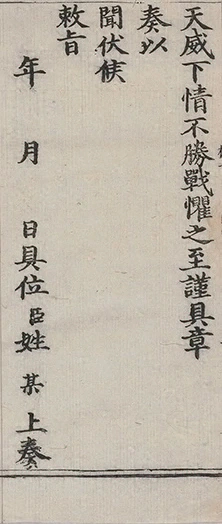 天威下情不勝戰懼之至謹具章
奏以
聞伏候
敕旨
年 月 日具位臣姓某上奏